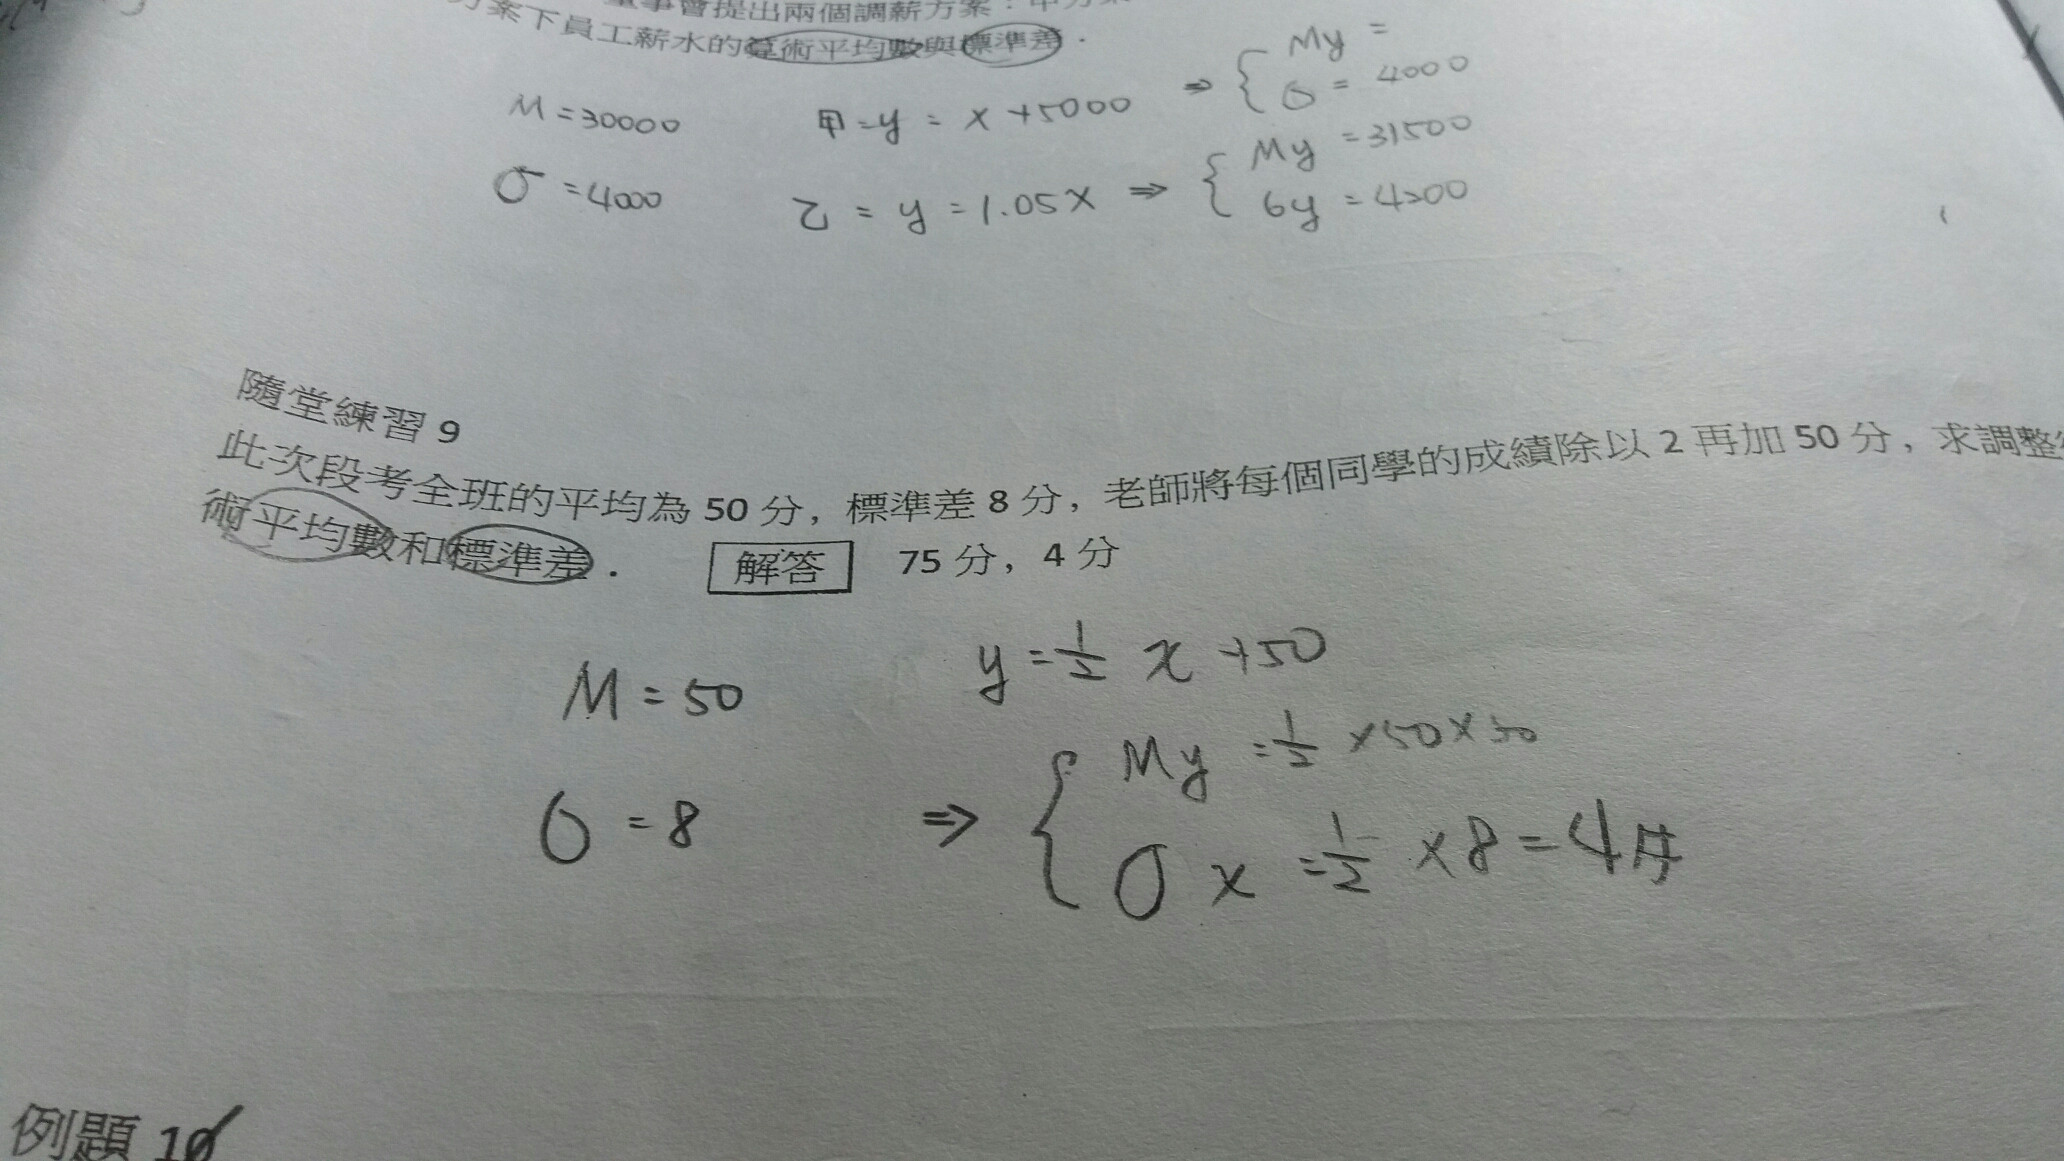 會提出兩個調薪方案：甲方案
方案下員工薪水的算術平均數與標準差．
M = 30000
甲 = y = x + 5000 ⇒ { My =
σ = 4000
σ = 4000
乙 = y = 1.05x ⇒ { My = 31500
σy = 4200
隨堂練習 9
此次段考全班的平均為 50 分，標準差 8 分，老師將每個同學的成績除以 2 再加 50 分，求調整
術平均數和標準差．
解答 75 分，4 分
M = 50
y = 1/2 x + 50
σ = 8
⇒ { My = 1/2 × 50 × 50
σx = 1/2 × 8 = 4 #
例題 10